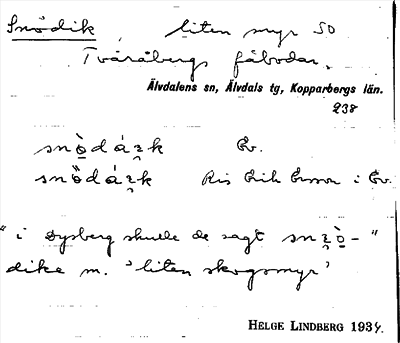 Snödik, liten myr SO
Tvåråbergs fäbodar.
Älvdalens sn, Älvdals tg, Kopparbergs län.
238
Ev.
Ris Erik Ersson i Ev.
"i Dysberg skulle de sagt
dike m. 'liten skogsmyr'
HELGE LINDBERG 1934.